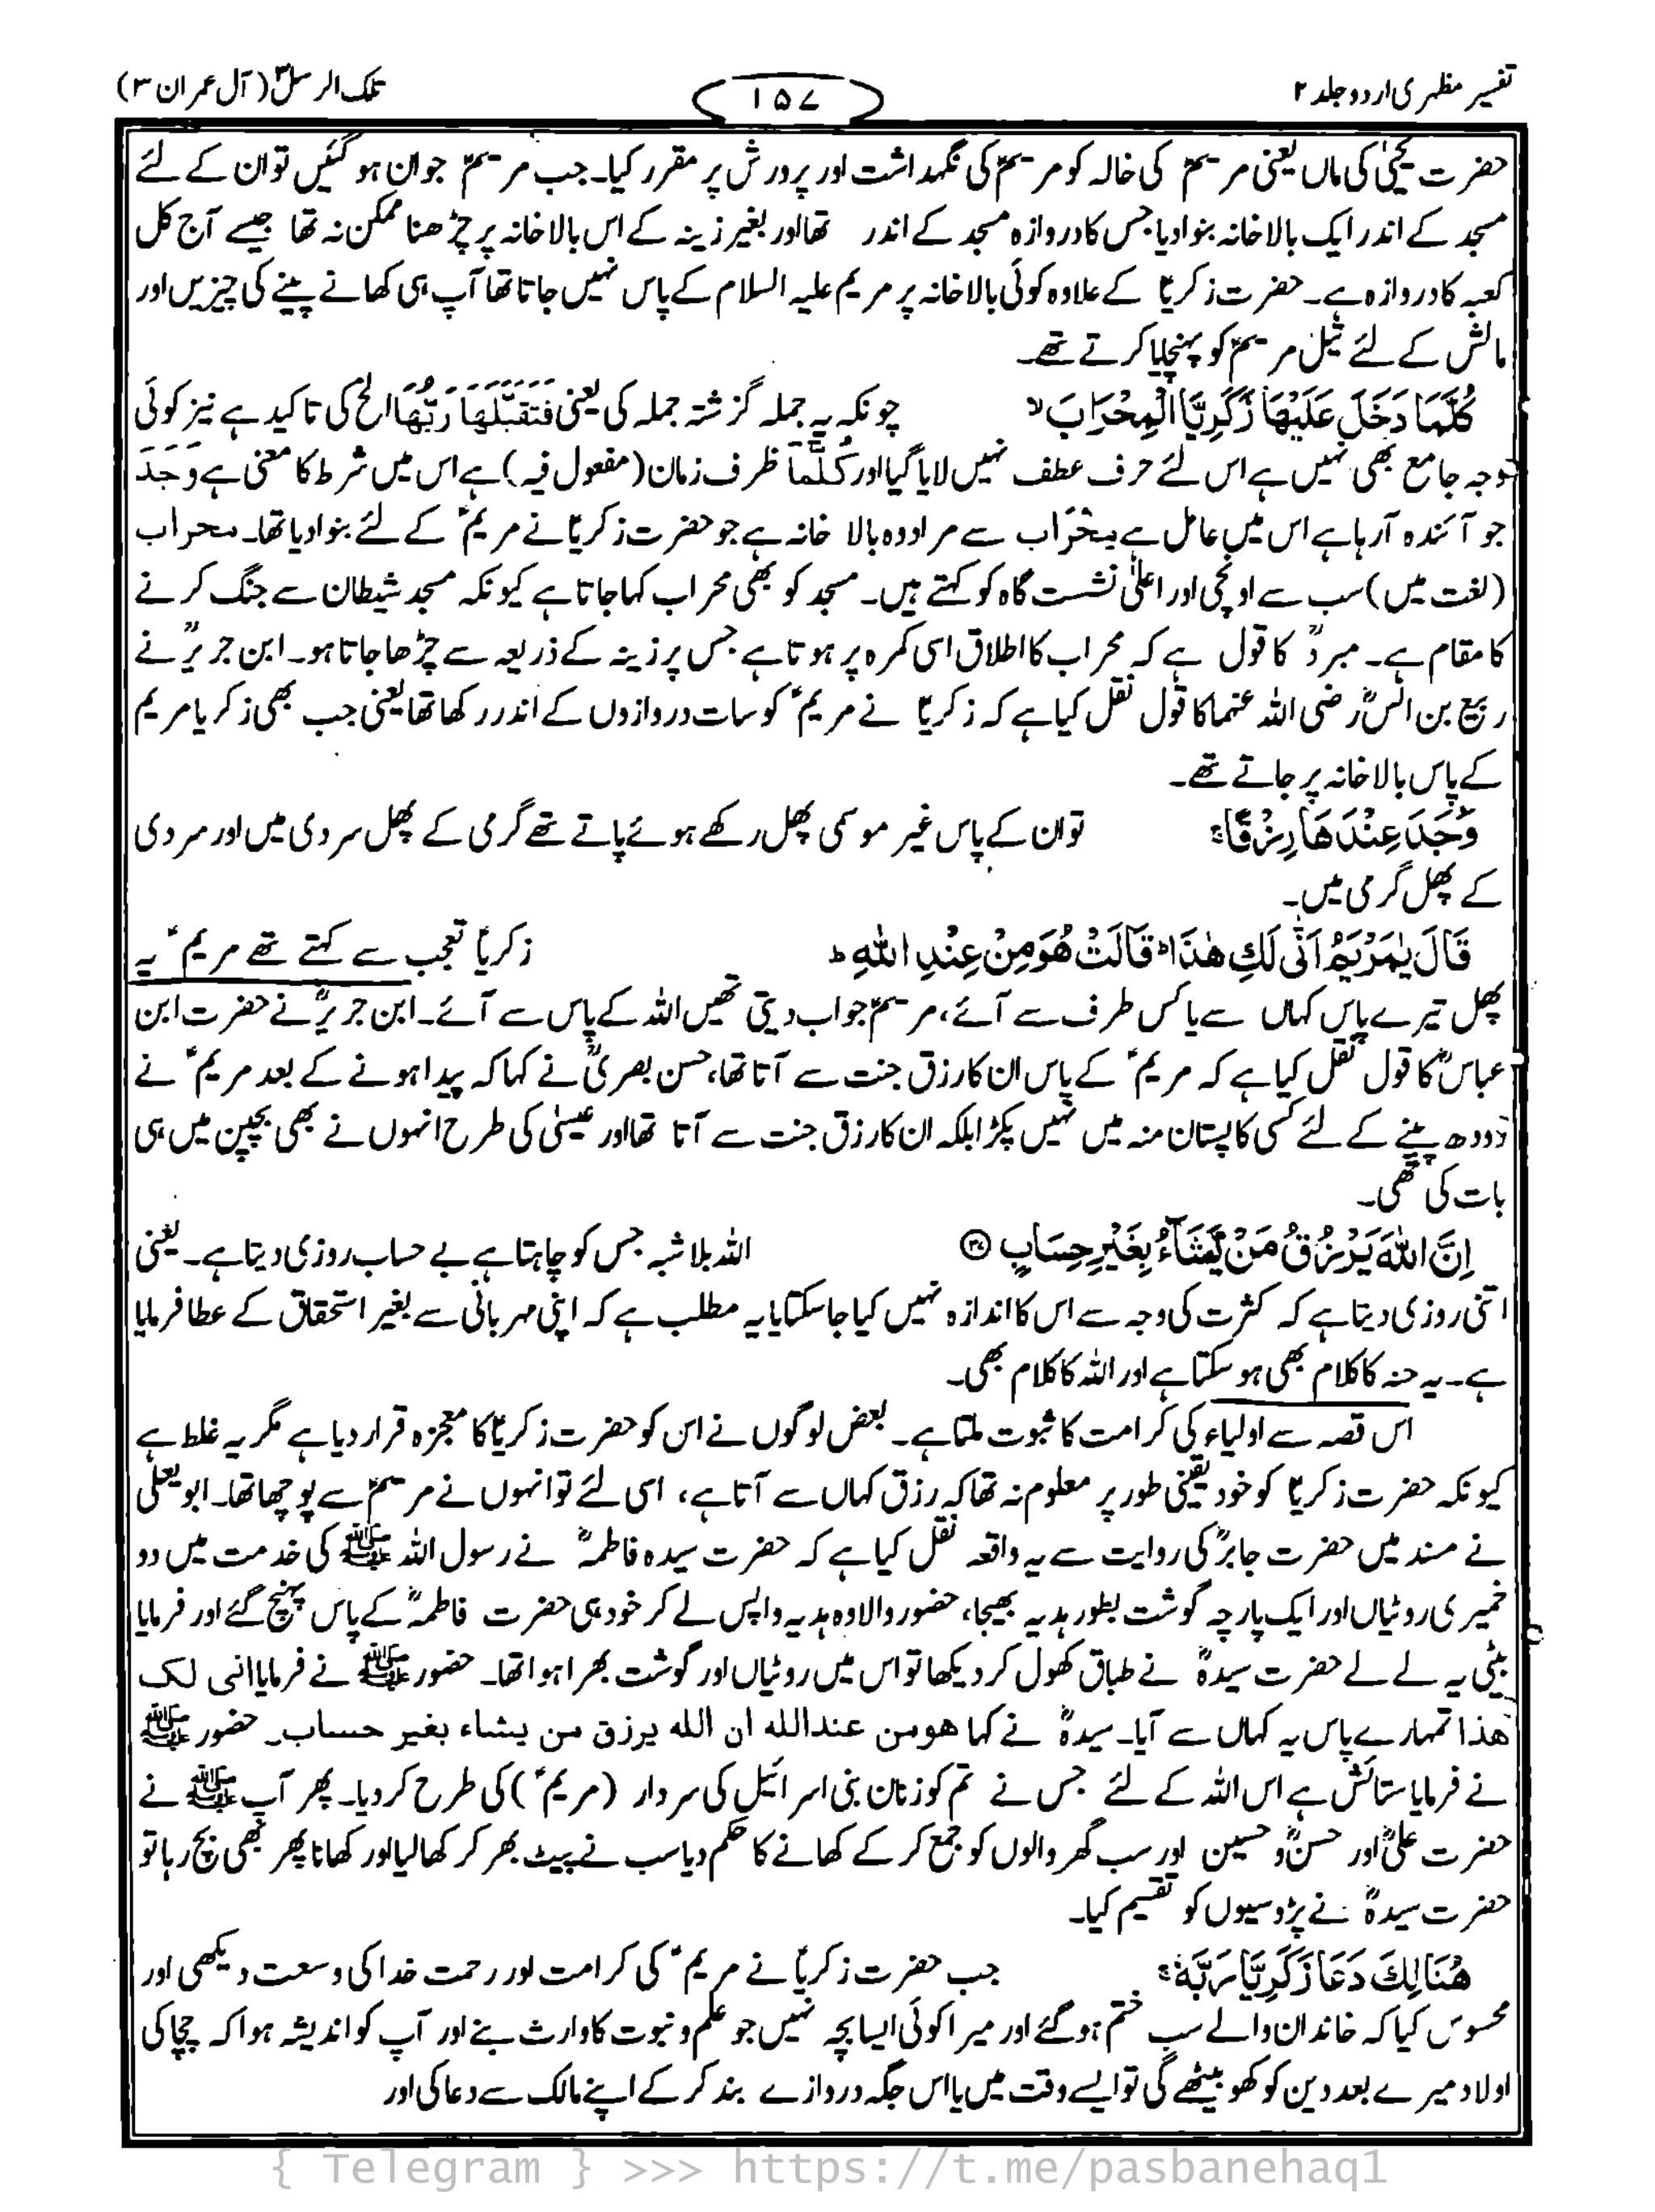 تفسیر مظہری اردو جلد ۲
۱۵۷
تلک الرسل ۳ (آل عمران ۳)
حضرت یحییٰ کی ماں یعنی مریمؑ کی خالہ کو مریمؑ کی نگہداشت اور پرورش پر مقرر کیا۔ جب مریمؑ جوان ہو گئیں تو ان کے لئے
مسجد کے اندر ایک بالا خانہ بنوا دیا جس کا دروازہ مسجد کے اندر تھا اور بغیر زینہ کے اس بالا خانہ پر چڑھنا ممکن نہ تھا جیسے آج کل
کعبہ کا دروازہ ہے۔ حضرت زکریاؑ کے علاوہ کوئی بالا خانہ پر مریم علیہ السلام کے پاس نہیں جاتا تھا آپ ہی کھانے پینے کی چیزیں اور
مالش کے لئے تیل مریمؑ کو پہنچایا کرتے تھے۔
كُلَّمَا دَخَلَ عَلَيْهَا زَكَرِيَّا الْمِحْرَابَ ۙ چونکہ یہ جملہ گزشتہ جملہ کی یعنی فَتَقَبَّلَهَا رَبُّهَا الخ کی تاکید ہے نیز کوئی
وجہ جامع بھی نہیں ہے اس لئے حرف عطف نہیں لایا گیا اور كُلَّمَا ظرف زمان (مفعول فیہ) ہے اس میں شرط کا معنی ہے وَجَدَ
جو آئندہ آرہا ہے اس میں عامل ہے مِحْرَاب سے مراد وہ بالا خانہ ہے جو حضرت زکریاؑ نے مریمؑ کے لئے بنوا دیا تھا۔ محراب
(لغت میں) سب سے اونچی اور اعلیٰ نشست گاہ کو کہتے ہیں۔ مسجد کو بھی محراب کہا جاتا ہے کیونکہ مسجد شیطان سے جنگ کرنے
کا مقام ہے۔ مبردؒ کا قول ہے کہ محراب کا اطلاق اسی کمرہ پر ہوتا ہے جس پر زینہ کے ذریعہ سے چڑھا جاتا ہو۔ ابن جریرؒ نے
ربیع بن انسؓ رضی اللہ عنہما کا قول نقل کیا ہے کہ زکریاؑ نے مریمؑ کو سات دروازوں کے اندر رکھا تھا یعنی جب بھی زکریا مریم
کے پاس بالا خانہ پر جاتے تھے۔
وَجَدَ عِنْدَهَا رِزْقًا ۚ تو ان کے پاس غیر موسمی پھل رکھے ہوئے پاتے تھے گرمی کے پھل سردی میں اور سردی
کے پھل گرمی میں۔
قَالَ يٰمَرْيَمُ اَنّٰى لَكِ هٰذَا ؕ قَالَتْ هُوَ مِنْ عِنْدِ اللّٰهِ ؕ زکریاؑ تعجب سے کہتے تھے مریمؑ یہ
پھل تیرے پاس کہاں سے یا کس طرف سے آئے، مریمؑ جواب دیتی تھیں اللہ کے پاس سے آئے۔ ابن جریرؒ نے حضرت ابن
عباسؓ کا قول نقل کیا ہے کہ مریمؑ کے پاس ان کا رزق جنت سے آتا تھا، حسن بصریؒ نے کہا کہ پیدا ہونے کے بعد مریمؑ نے
دودھ پینے کے لئے کسی کا پستان منہ میں نہیں پکڑا بلکہ ان کا رزق جنت سے آتا تھا اور عیسیٰ کی طرح انہوں نے بھی بچپن میں ہی
بات کی تھی۔
اِنَّ اللّٰهَ يَرْزُقُ مَنْ يَّشَآءُ بِغَيْرِ حِسَابٍ ۝۳۷ اللہ بلا شبہ جس کو چاہتا ہے بے حساب روزی دیتا ہے۔ یعنی
اتنی روزی دیتا ہے کہ کثرت کی وجہ سے اس کا اندازہ نہیں کیا جا سکتا یا یہ مطلب ہے کہ اپنی مہربانی سے بغیر استحقاق کے عطا فرمایا
ہے۔ یہ حنہ کا کلام بھی ہو سکتا ہے اور اللہ کا کلام بھی۔
اس قصہ سے اولیاء کی کرامت کا ثبوت ملتا ہے۔ بعض لوگوں نے اس کو حضرت زکریاؑ کا معجزہ قرار دیا ہے مگر یہ غلط ہے
کیونکہ حضرت زکریاؑ کو خود یقینی طور پر معلوم نہ تھا کہ رزق کہاں سے آتا ہے، اسی لئے تو انہوں نے مریمؑ سے پوچھا تھا۔ ابو یعلی
نے مسند میں حضرت جابرؓ کی روایت سے یہ واقعہ نقل کیا ہے کہ حضرت سیدہ فاطمہؓ نے رسول اللہ ﷺ کی خدمت میں دو
خمیری روٹیاں اور ایک پارچہ گوشت بطور ہدیہ بھیجا، حضور والا وہ ہدیہ واپس لے کر خود ہی حضرت فاطمہؓ کے پاس پہنچ گئے اور فرمایا
بیٹی یہ لے لے حضرت سیدہؓ نے طباق کھول کر دیکھا تو اس میں روٹیاں اور گوشت بھرا ہوا تھا۔ حضور ﷺ نے فرمایا انی لک
ھذا تمہارے پاس یہ کہاں سے آیا۔ سیدہؓ نے کہا ھو من عنداللہ ان اللہ یرزق من یشاء بغیر حساب۔ حضور ﷺ
نے فرمایا ستائش ہے اس اللہ کے لئے جس نے تم کو زنان بنی اسرائیل کی سردار (مریمؑ) کی طرح کر دیا۔ پھر آپ ﷺ نے
حضرت علیؓ اور حسنؓ و حسین اور سب گھر والوں کو جمع کر کے کھانے کا حکم دیا سب نے پیٹ بھر کر کھا لیا اور کھانا پھر بھی بچ رہا تو
حضرت سیدہؓ نے پڑوسیوں کو تقسیم کیا۔
هُنَالِكَ دَعَا زَكَرِيَّا رَبَّهٗ ۚ جب حضرت زکریاؑ نے مریمؑ کی کرامت اور رحمت خدا کی وسعت دیکھی اور
محسوس کیا کہ خاندان والے سب ختم ہو گئے اور میرا کوئی ایسا بچہ نہیں جو علم و نبوت کا وارث بنے اور آپ کو اندیشہ ہوا کہ چچا کی
اولاد میرے بعد دین کو کھو بیٹھے گی تو ایسے وقت میں یا اس جگہ دروازے بند کر کے اپنے مالک سے دعا کی اور
{ Telegram } >>> https://t.me/pasbanehaq1